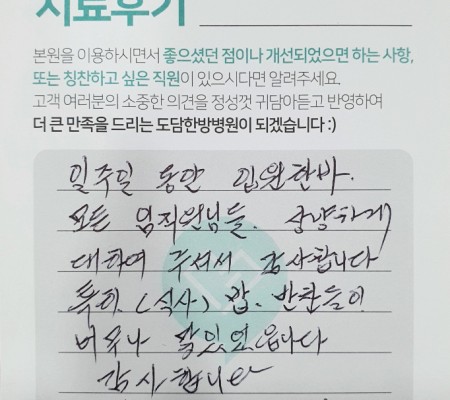 치료후기
본원을 이용하시면서 좋으셨던 점이나 개선되었으면 하는 사항,
또는 칭찬하고 싶은 직원이 있으시다면 알려주세요.
고객 여러분의 소중한 의견을 정성껏 귀담아듣고 반영하여
더 큰 만족을 드리는 도담한방병원이 되겠습니다 :)
일주일 동안 입원한바.
모든 임직원님들. 상냥하게
대하여 주셔서 감사합니다
특히. (식사) 밥. 반찬들이
너무나 맛있었읍니다
감사합니다